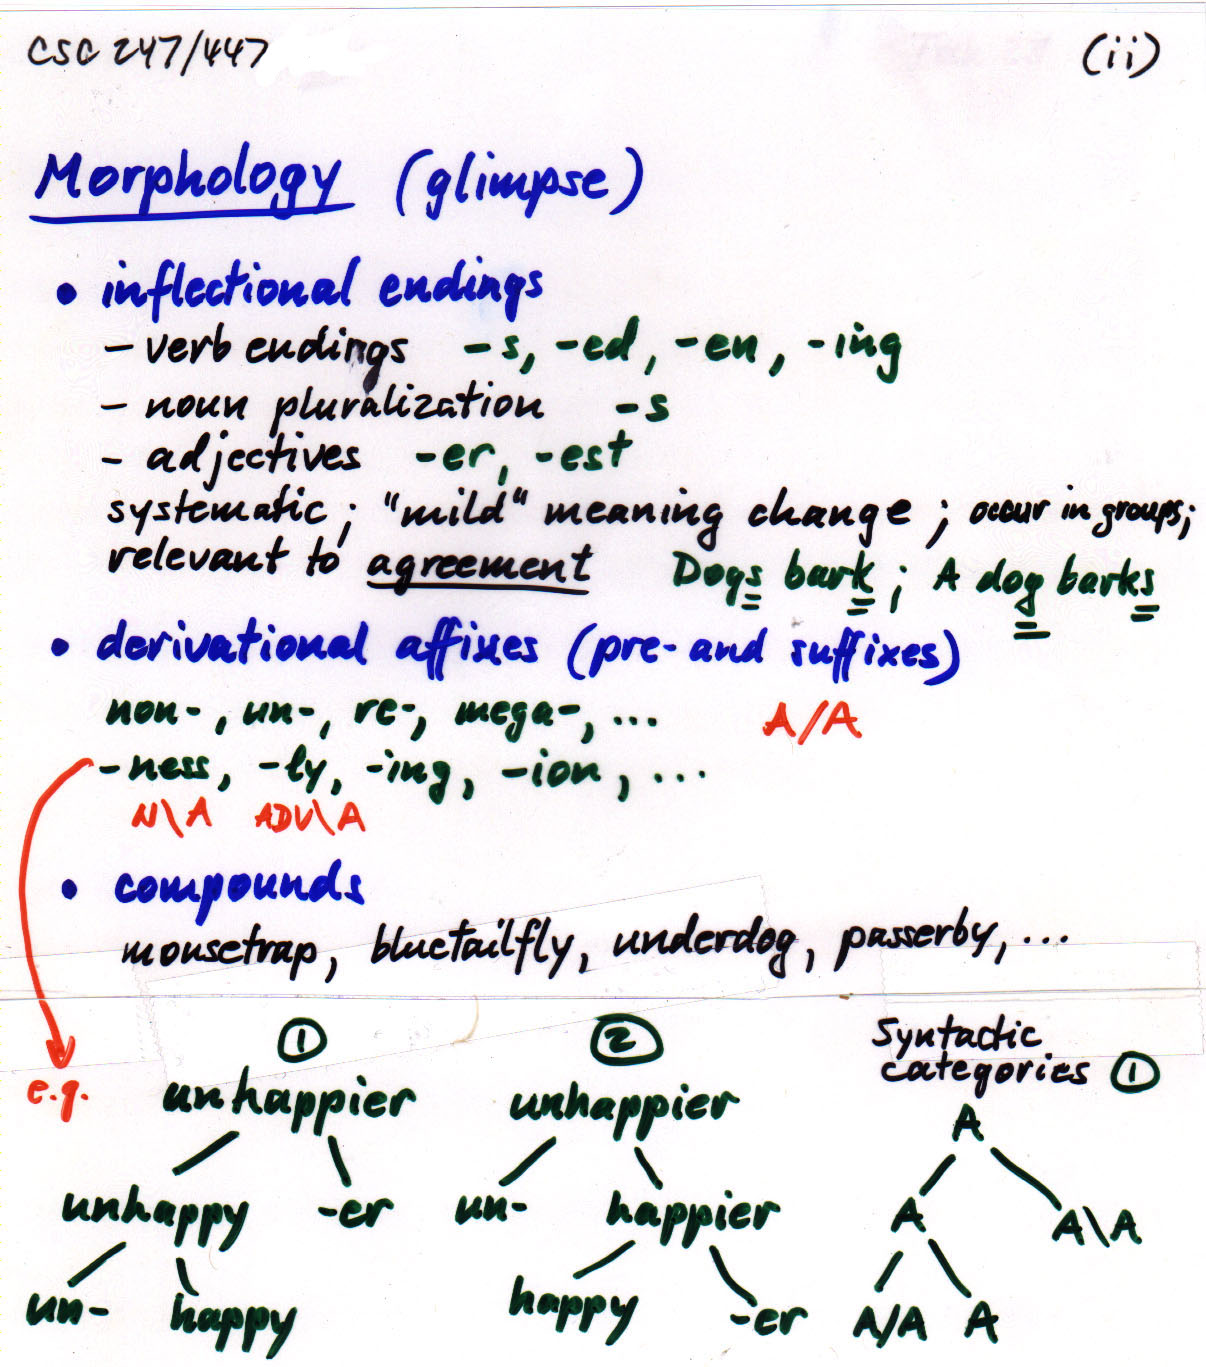 CSC 247/447 (ii)
Morphology (glimpse)
• inflectional endings
– verb endings -s, -ed, -en, -ing
– noun pluralization -s
– adjectives -er, -est
systematic; "mild" meaning change; occur in groups;
relevant to agreement Dogs bark; A dog barks
• derivational affixes (pre- and suffixes)
non-, un-, re-, mega-, ... A/A
-ness, -ly, -ing, -ion, ...
N\A ADV\A
• compounds
mousetrap, bluetailfly, underdog, passerby, ...
① ② Syntactic
categories ①
e.g. unhappier unhappier A
unhappy -er un- happier A A\A
un- happy happy -er A/A A